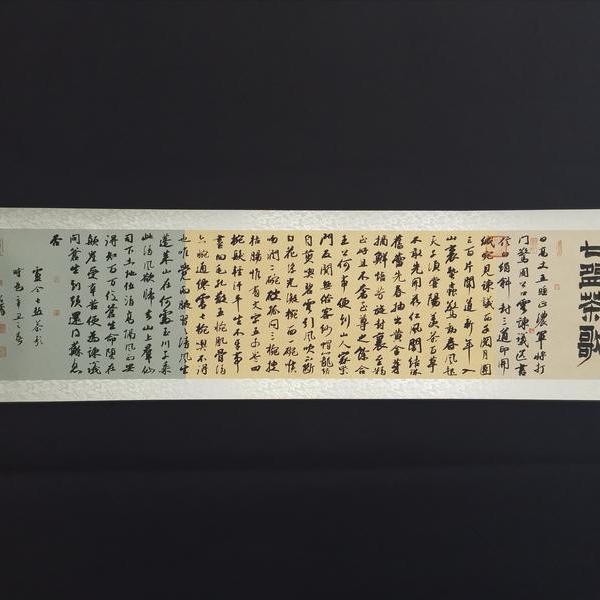 茶歌
日高丈五睡正濃軍將打
門驚周公口雲諫議送書
信白絹斜封三道印開
緘宛見諫議面手閱月團
三百片聞道新年入
山裏蟄蟲驚動春風起
天子須嘗陽羨茶百草
不敢先開花仁風闇結珠
蓓蕾先春抽出黃金芽
摘鮮焙芳旋封裹至精
至好且不奢至尊之餘合
王公何事便到山人家柴
門反關無俗客紗帽籠頭
自煎吃碧雲引風吹不斷
白花浮光凝碗面一碗喉
吻潤二碗破孤悶三碗搜
枯腸惟有文字五千卷四
碗發輕汗平生不平事
盡向毛孔散五碗肌骨清
六碗通仙靈七碗喫不得
也唯覺兩腋習習清風生
蓬萊山在何處玉川子乘
此清風欲歸去山上群仙
司下土地位清高隔風雨安
得知百萬億蒼生命墮在
顛崖受辛苦便為諫議
問蒼生到頭還得蘇息
否
盧仝七碗茶歌
辛丑之春